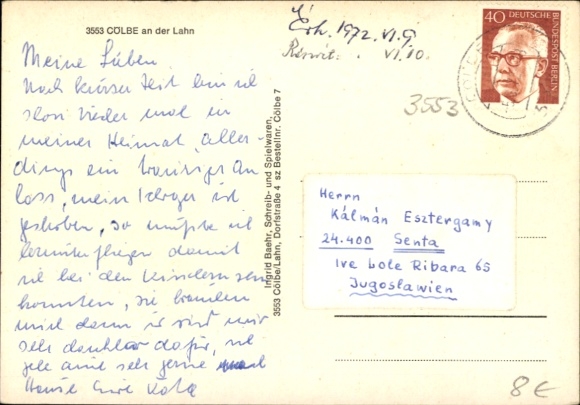 3553 CÖLBE an der Lahn
Meine Lieben
Nach kurzer Zeit bin ich
schon wieder mal in
meiner Heimat, aller-
dings ein trauriger An
lass, mein ist
gestorben, so mußte ich
fliegen damit
sie bei den Kindern sein
konnten, sie
mich dann
sehr dankbar dafür, ich
gehe auch sehr gerne nach
Hause Eure Kata
Ingrid Baehr, Schreib- und Spielwaren,
3553 Cölbe/Lahn, Dorfstraße 4 sz Bestellnr. Cölbe 7
Érk. 1972. VI. 9.
VI. 10.
40 DEUTSCHE BUNDESPOST BERLIN
3553
Herrn
Kálmán Esztergamy
24.400 Senta
Ive Lole Ribara 65
Jugoslawien
8€